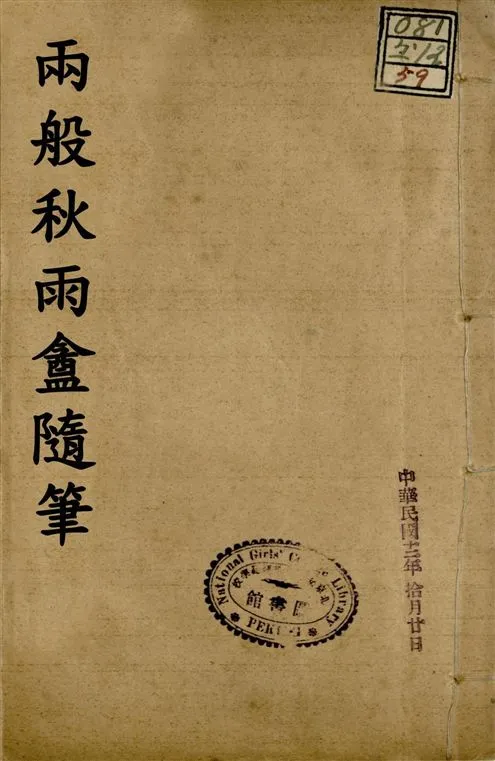 兩般秋雨盦隨筆
081
59
中華民國十二年拾月廿日
National Girls' Library
圖書館
PEKING